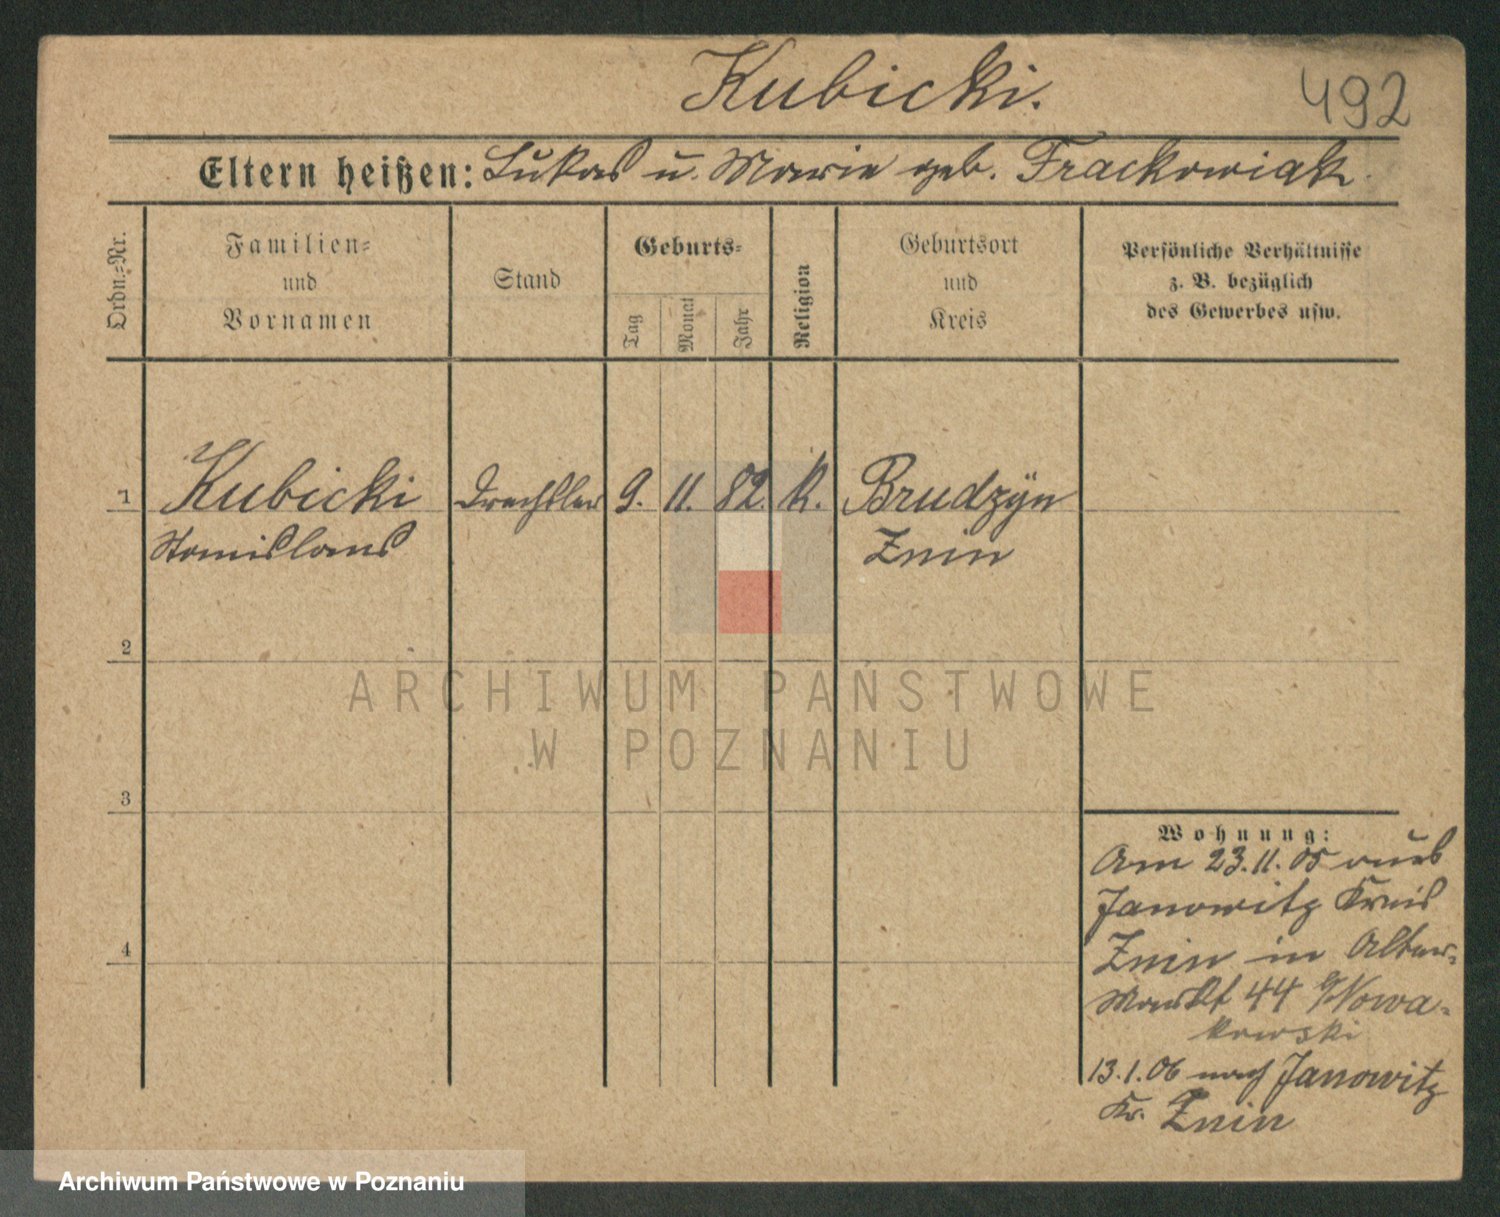 Kubicki.
492
Eltern heißen: Lukas u. Marie geb. Frackowiak.
Ordn.=Nr.
Familien=
und
Vornamen
Stand
Geburts=
Tag
Monat
Jahr
Religion
Geburtsort
und
Kreis
Persönliche Verhältnisse
z. B. bezüglich
des Gewerbes usw.
1 Kubicki Drechsler 9. 11. 82. k. Brudzyn
Stanislaus Znin
2
ARCHIWUM PAŃSTWOWE
W POZNANIU
3
Wohnung:
Am 23.11.05 aus
Janowitz Kreis
Znin in Alter=
Markt 44 b/Nowa=
kowski
4
13.1.06 nach Janowitz
Kr. Znin
Archiwum Państwowe w Poznaniu